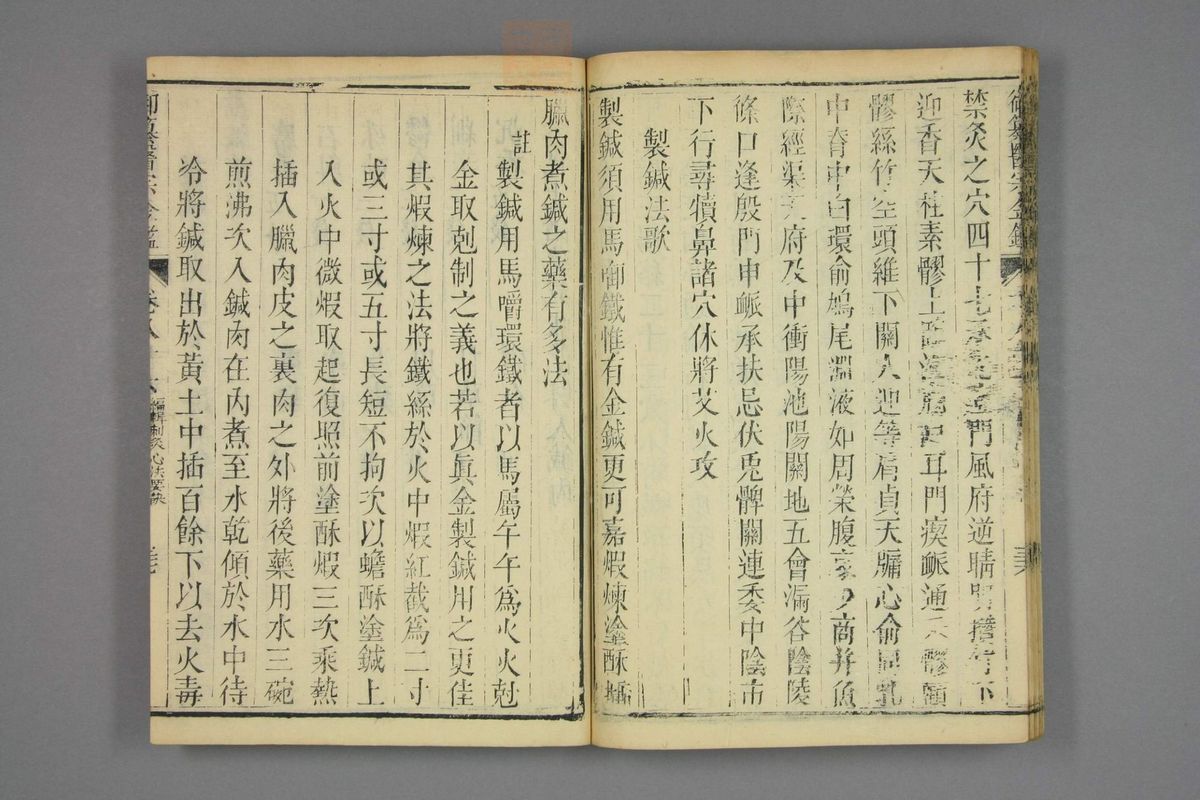 御纂醫宗金鑑
禁灸之穴四十七承門風府逆睛明攢竹下
迎香天柱素髎上耳門瘈脈通髎顴
髎絲竹空頭維下關人迎等肩貞天牖心俞乳
中脊中白環俞鳩尾淵液如周榮腹少商并魚
際經渠天府及中衝陽池陽關地五會漏谷陰陵
條口逢殷門申脈承扶忌伏兎髀關連委中陰市
下行尋犢鼻諸穴休將艾火攻
製鍼法歌
製鍼須用馬啣鐵惟有金鍼更可嘉煆煉塗酥插
臘肉煮鍼之藥有多法
註 製鍼用馬嚼環鐵者以馬屬午午為火火尅
金取尅制之義也若以眞金製鍼用之更佳
其煆煉之法將鐵絲於火中煆紅截為二寸
或三寸或五寸長短不拘次以蟾酥塗鍼上
入火中微煆取起復照前塗酥煆三次乘熱
插入臘肉皮之裏肉之外將後藥用水三碗
煎沸次入鍼肉在內煮至水乾傾於水中待
冷將鍼取出於黃土中插百餘下以去火毒
御纂醫宗金鑑 卷八十六 編輯刺灸心法要訣